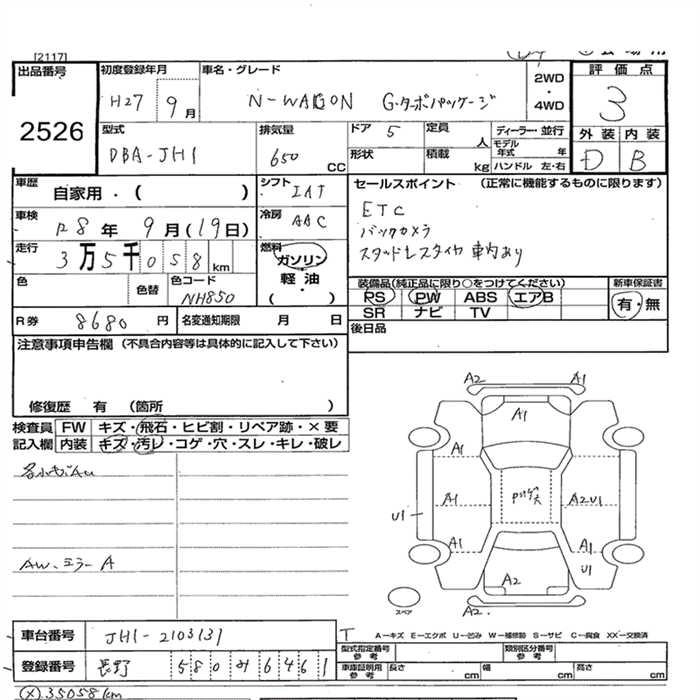 [2117]
出品番号
2526
初度登録年月
H27 9月
車名・グレード
N-WAGON G・ターボパッケージ
2WD
・
4WD
評価点
3
外装 内装
D B
型式
DBA-JH1
排気量
650 CC
ドア 5
定員 人
形状
積載 kg
ディーラー・並行
モデル年式 年
ハンドル 左・右
車歴
自家用・( )
シフト IAT
車検
R8年 9月(19日)
冷房 AAC
走行
3万5千058km
燃料
ガソリン
軽油
・
( )
色
色替
色コード
NH850
R券 8680円
名変通知期限 月 日
セールスポイント (正常に機能するものに限ります)
ETC
バックカメラ
スタッドレスタイヤ 車内あり
装備品(純正品に限り○をつけてください)
PS PW ABS エアB
SR ナビ TV
新車保証書
有・無
後日品
注意事項申告欄(不具合内容等は具体的に記入して下さい)
修復歴 有 (箇所 )
検査員 FW キズ・飛石・ヒビ割・リペア跡・×要
記入欄 内装 キズ・汚レ・コゲ・穴・スレ・キレ・破レ
AW、ミラーA
A2 A1
A1
A1 A1
U1 A1 A2U1
A1 A1
U1
A2
A2
スペア
車台番号 JH1-2103131
登録番号 長野 580 み 6461
T A-キズ E-エクボ U-凹み W-補修跡 S-サビ C-腐食 XX-交換済
型式指定番号
参考
類別区分番号
参考
車庫証明用
参考
長さ cm 幅 cm 高さ cm
(×)35058km